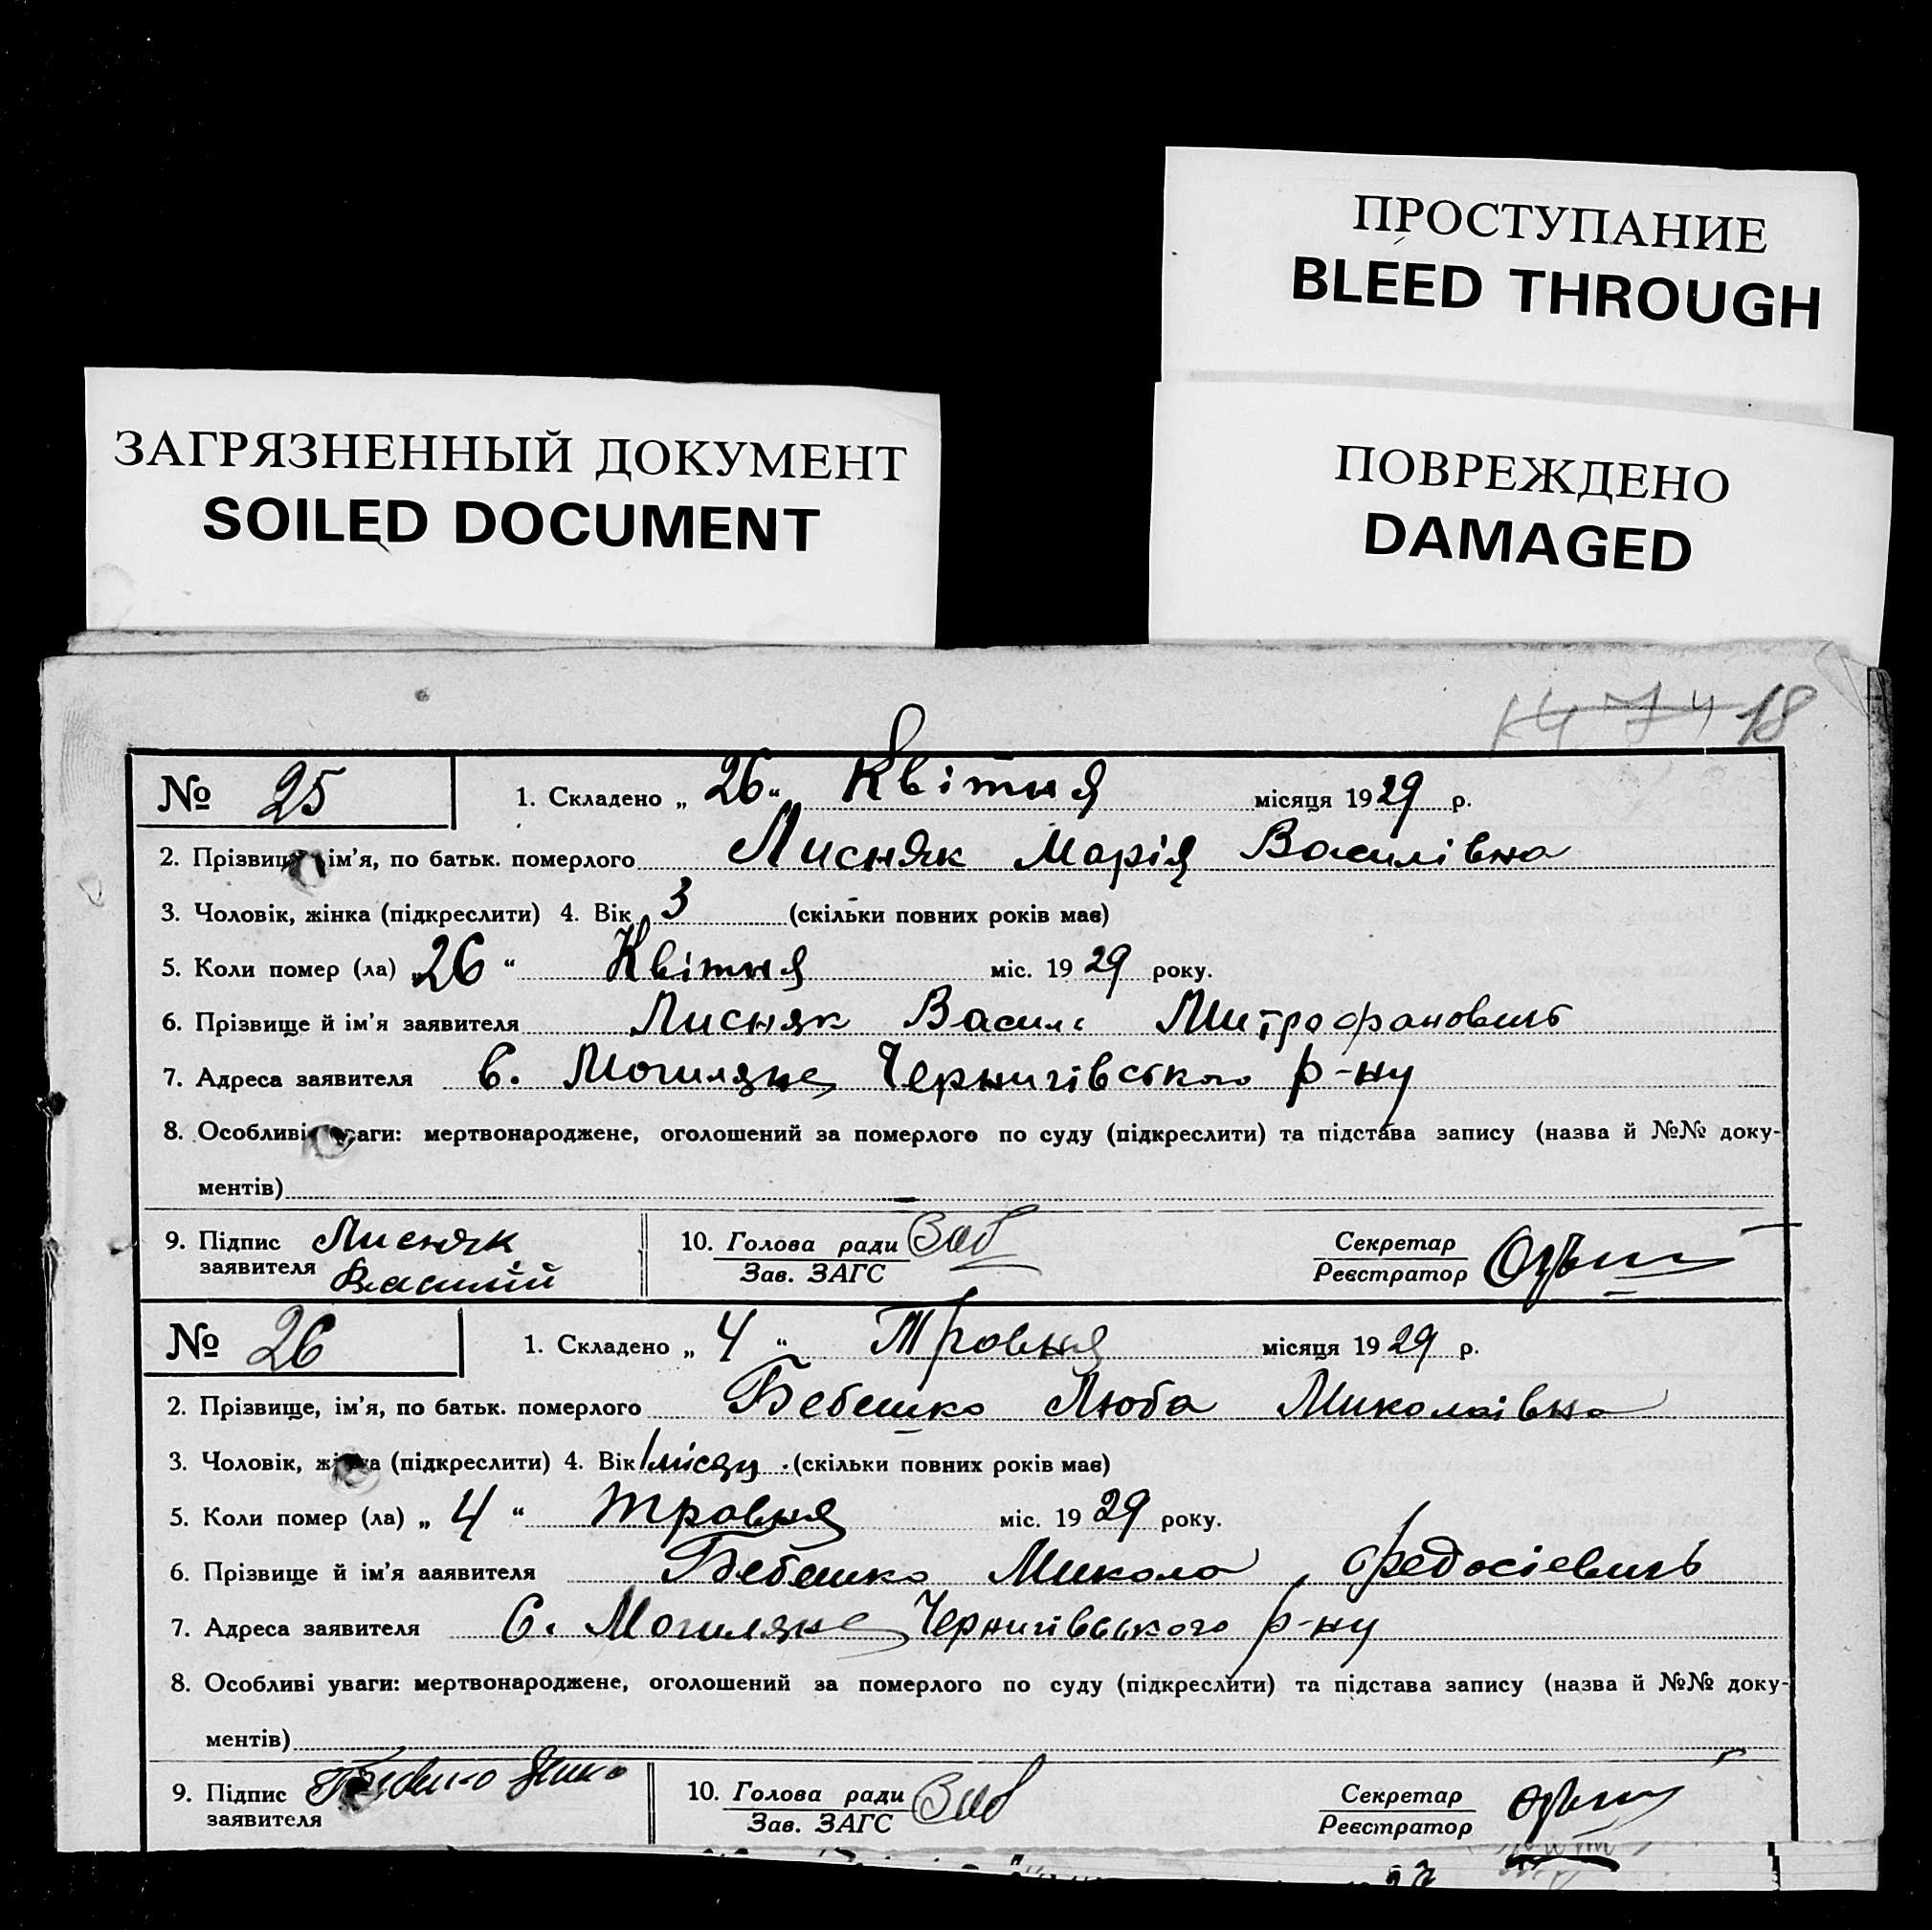 ПРОСТУПАНИЕ
BLEED THROUGH
ЗАГРЯЗНЕННЫЙ ДОКУМЕНТ
SOILED DOCUMENT
ПОВРЕЖДЕНО
DAMAGED
18
№ 25 1. Складено „ 26 “ Квітня місяця 1929 р.
2. Прізвище, ім’я, по батьк. померлого Лисняк Марія Василівна
3. Чоловік, жінка (підкреслити) 4. Вік 3 (скільки повних років має)
5. Коли помер (ла) „ 26 “ Квітня міс. 1929 року.
6. Прізвище й ім’я заявителя Лисняк Василь Митрофанович
7. Адреса заявителя С. Могиляне Чернигівського р-ну
8. Особливі уваги: мертвонароджене, оголошений за померлого по суду (підкреслити) та підстава запису (назва й №№ доку-
ментів)
9. Підпис заявителя Лисняк Василій 10. Голова ради Зав. ЗАГС Секретар Реєстратор
№ 26 1. Складено „ 4 “ Травня місяця 1929 р.
2. Прізвище, ім’я, по батьк. померлого Бебешко Люба Миколаівна
3. Чоловік, жінка (підкреслити) 4. Вік 1 місяц (скільки повних років має)
5. Коли помер (ла) „ 4 “ травня міс. 1929 року.
6. Прізвище й ім’я ааявителя Бебешко Микола Федосієвичь
7. Адреса заявителя С. Могиляне Чернигівського р-ну
8. Особливі уваги: мертвонароджене, оголошений за померлого по суду (підкреслити) та підстава запису (назва й №№ доку-
ментів)
9. Підпис заявителя 10. Голова ради Зав. ЗАГС Секретар Реєстратор